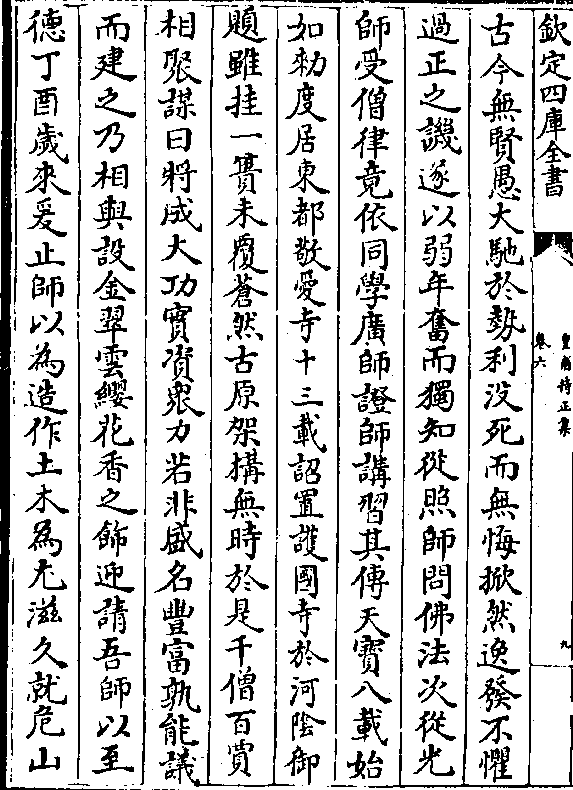 欽定四庫全書
皇甫持正集
卷六
九
古今無賢愚大馳於勢利没死而無悔掀然逸發不懼
過正之譏遂以弱年奮而獨知從照師問佛法次從光
師受僧律竟依同學廣師證師講習其傳天寶八載始
如勅度居東都敬愛寺十三載詔置護國寺於河隂御
題雖挂一簣未覆蒼然古原架構無時於是千僧百賈
相聚謀曰將成大功實資衆力若非盛名豐富孰能議
而建之乃相與設金翠雲纓花香之飾迎請吾師以至
德丁酉歳来爰止師以為造作土木為尤滋久就危山